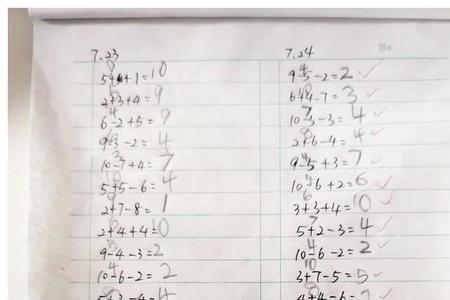 7.23
5+4+1=10
2+3+4=9
6-2+5=9
9-3-2=4
10-7+4=7
5+5-6=4
2+7-8=1
2+4+4=10
9-4-3=2
10-6-2=2
5+3-4=4
7.24
No
9-5-2=2
6+4-7=3
10-3-3=4
2+6-4=4
9-5+3=7
10-6+2=6
3+3+4=10
5+2-3=4
10-6-2=2
3+7-5=5
4+4-6=